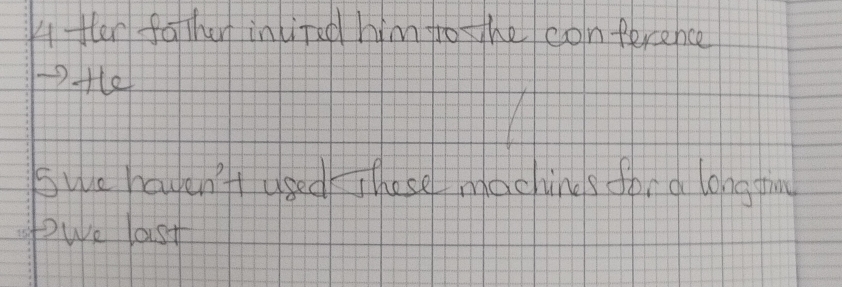 4 Her father invited him to the conference
→ He
5 we haven't used these machines for a long tim
→ we last